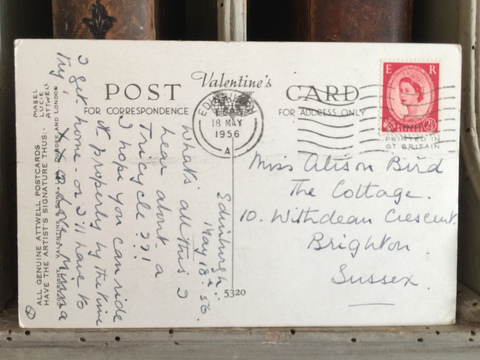 POST Valentine's CARD
FOR CORRESPONDENCE
FOR ADDRESS ONLY
EDINBURGH
18 MAY
1956
A
E R
Edinburgh.
May 18th 56.
What's all this I
hear about a
Tricycle ??!
I hope you can ride
it properly by the time
I get home - or I'll have to
try
Miss Alison Bird
The Cottage.
10. Withdean Crescent
Brighton.
Sussex.
5320
ALL GENUINE ATTWELL POSTCARDS
HAVE THE ARTIST'S SIGNATURE THUS:-
MABEL
LUCIE
ATTWELL